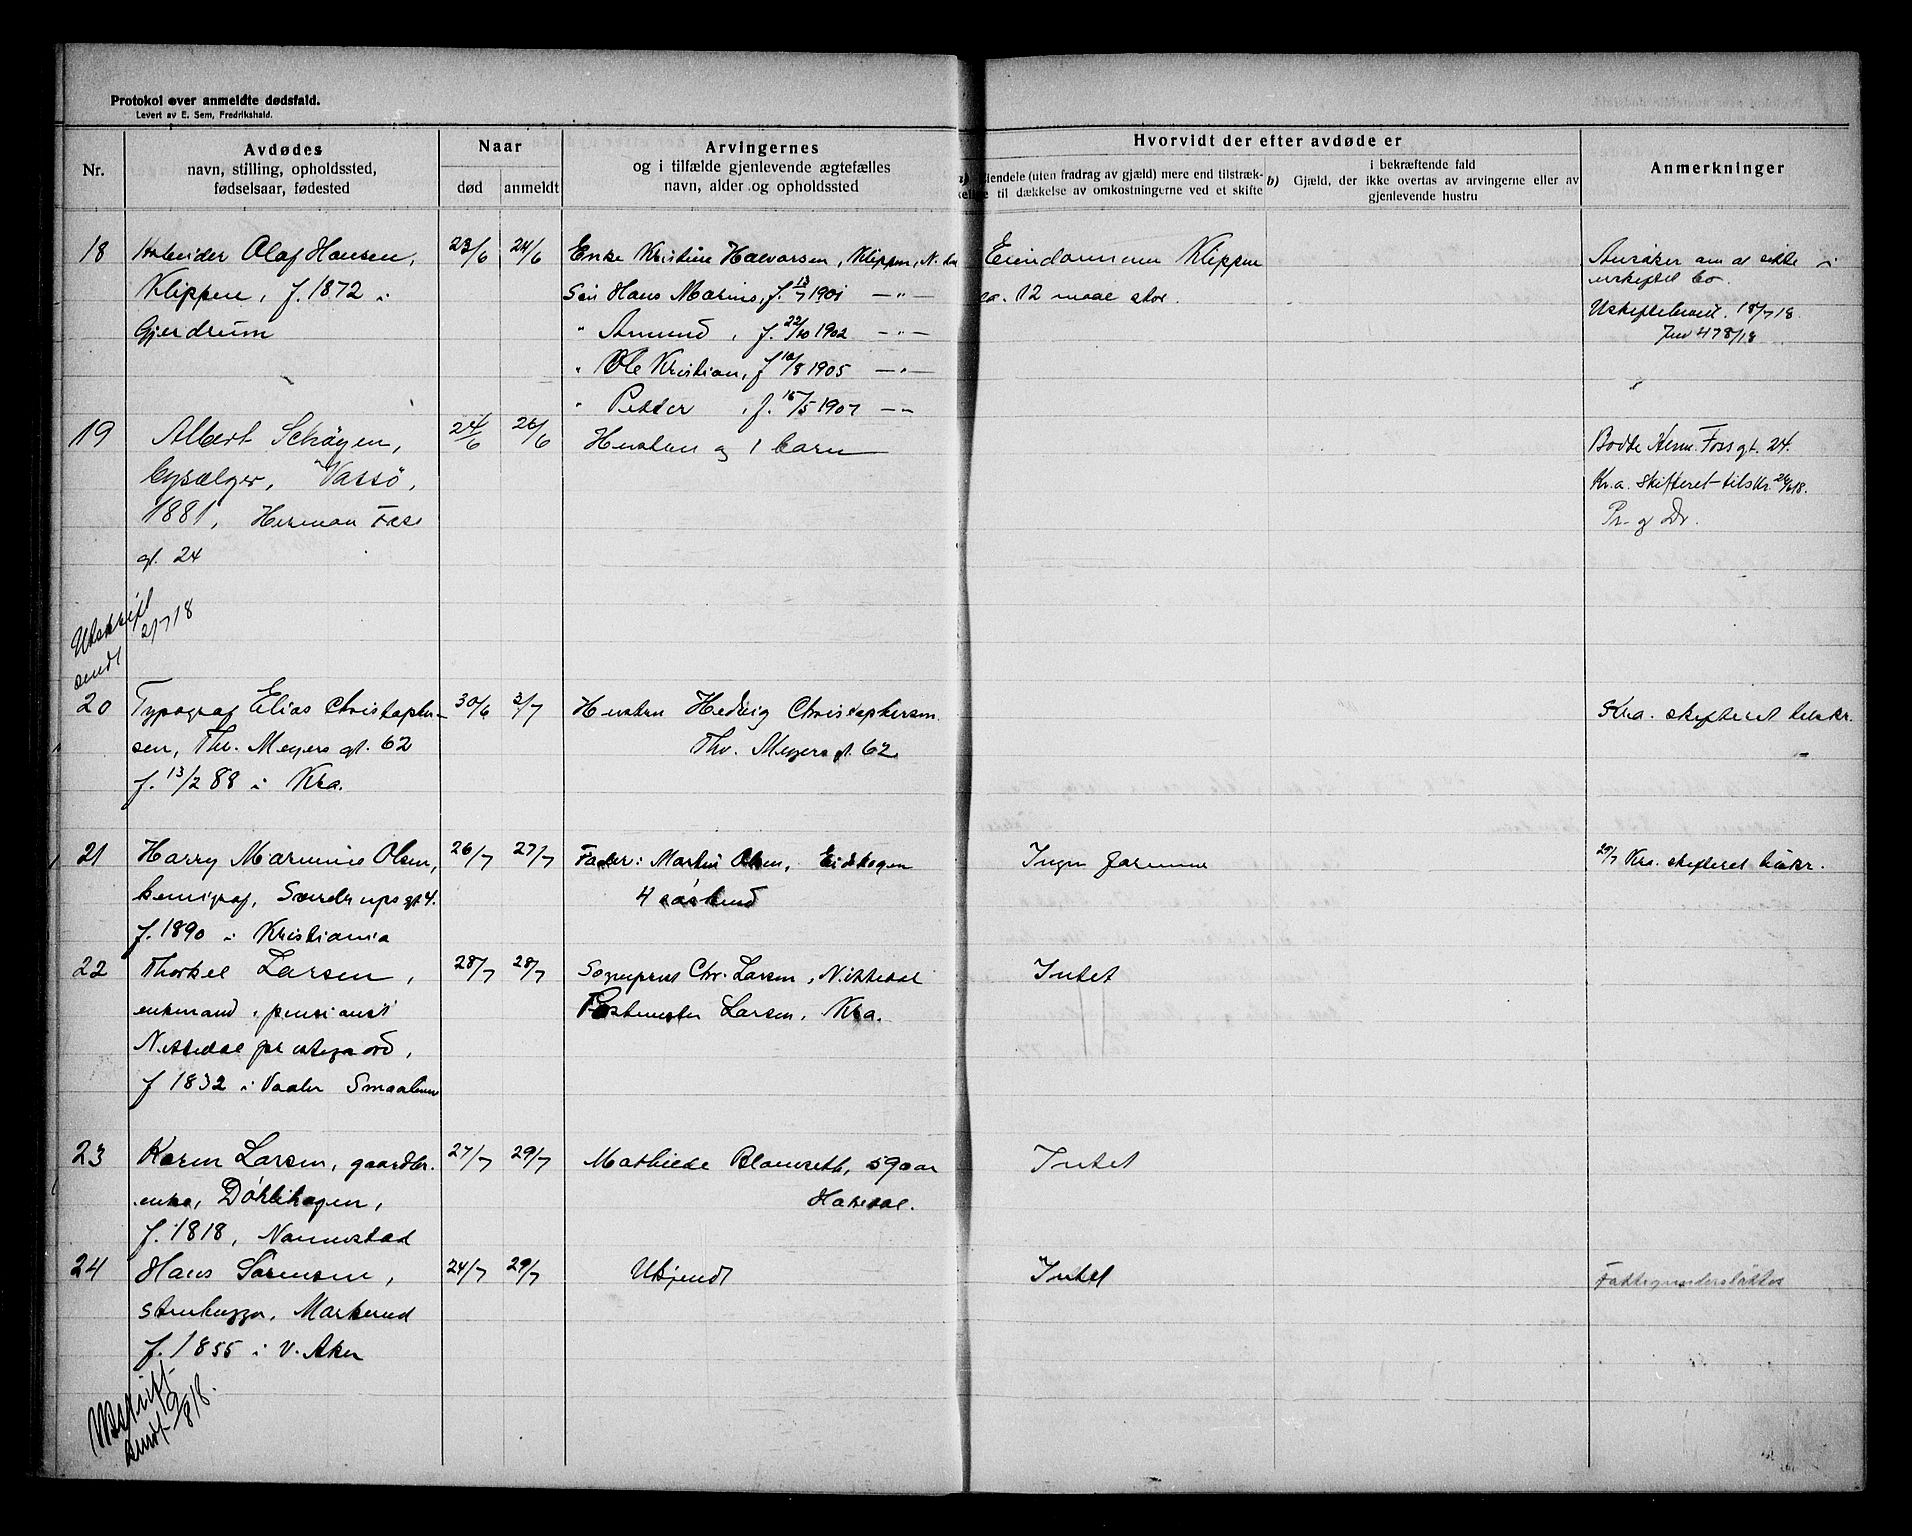 Protokol over anmeldte dødsfald.
Levert av E. Sem, Fredrikshald.
Nr.
Avdødes
navn, stilling, opholdssted,
fødselsaar, fødested
Naar
død anmeldt
Arvingernes
og i tilfælde gjenlevende ægtefælles
navn, alder og opholdssted
Hvorvidt der efter avdøde er
a) Eiendele (uten fradrag av gjæld) mere end tilstræk-
kelige til dækkelse av omkostningerne ved et skifte
b) Gjæld, der i bekræftende fald
ikke overtas av arvingerne eller av
gjenlevende hustru
Anmerkninger
18 Arbeider Olaf Hansen, 23/6 24/6 Enke Kristine Halvorsen, Klippen, N.dal Eiendommen Klippen Ansøker om at sitte i
Klippen, f. 1872 i Søn Hans Marius, f. 13/7 1901 —"— ca. 12 maal stor. uskiftet bo.
Gjerdrum " Amund, f. 22/10 1902 —"— Uskiftebevil. 18/7 18.
Jnr 478/18
" Ole Kristian, f 10/8 1905 —"—
" Petter, f. 15/5 1907 —"—
19 Albert Schøyen, 24/6 26/6 Hustru og 1 barn Bodde Herm. Foss gt. 24.
bysælger, Vassø, Kr.a. skifteret tilskr. 26/6 18.
1881, Herman Foss Pr. og Dr.
gt. 24
Utskrift
sendt 2/7 18
20 Typograf Elias Christopher- 30/6 3/7 Hustru Hedvig Christophersen. Kra. skifteret tilskr.
sen, Th. Meyers gt. 62 Thv. Meyers gt. 62
f. 13/2 88 i Kra.
21 Harry Marinius Olsen, 26/7 27/7 Fader: Martin Olsen, Eidskogen Ingen formue 29/7 Kra. skifteret tilskr.
kemigraf, gt 4. 4 søskend
f. 1890 i Kristiania
22 Thorkel Larsen, 28/7 28/7 Sogneprest Chr. Larsen, Nittedal Intet
enkemand, pensionist Postmester Larsen, Kra.
Nittedal prestegaard,
f 1832 i Vaaler Smaalenene
23 Karen Larsen, gaardbr. 27/7 29/7 Mathilde Blomseth, 59 aar Intet
enke, Døhlihagen, Hakedal.
f. 1818, Nannestad
24 Hans Sørensen, 24/7 29/7 Ukjendt Intet Fattigunderstøttet
stenhugger, Markerud
f. 1855 i V. Aker
Utskrift
sendt 9/8 18.